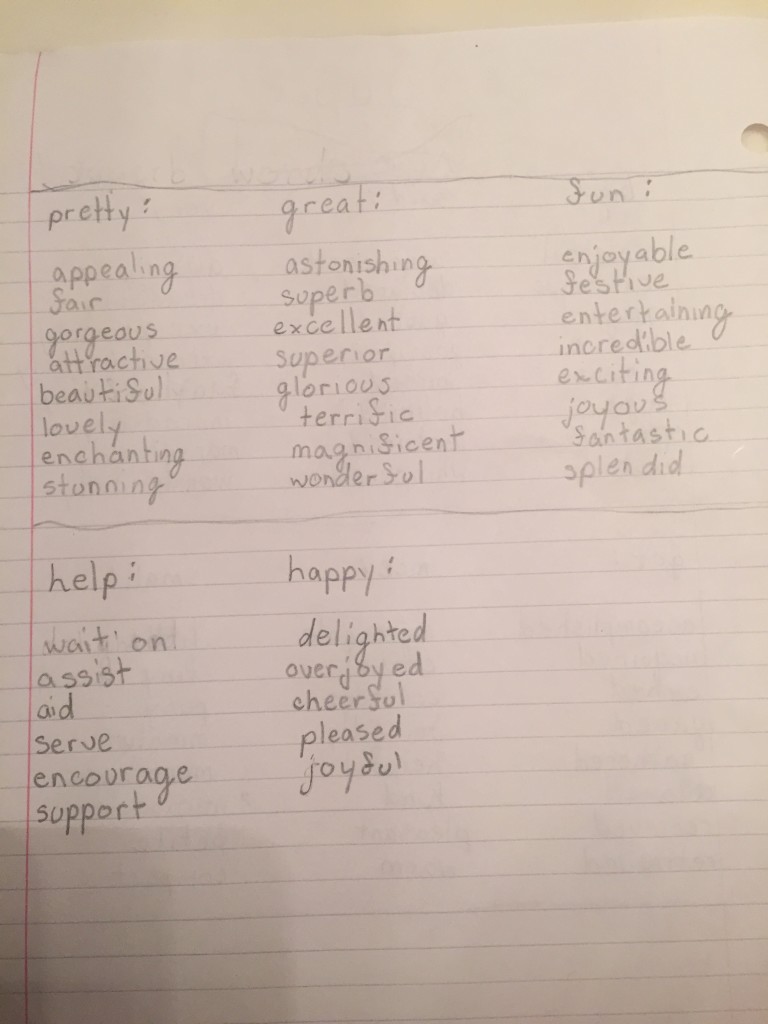 pretty: great: fun:
appealing astonishing enjoyable
fair superb festive
gorgeous excellent entertaining
attractive superior incredible
beautiful glorious exciting
lovely terrific joyous
enchanting magnificent fantastic
stunning wonderful splendid
help: happy:
wait on delighted
assist overjoyed
aid cheerful
serve pleased
encourage joyful
support